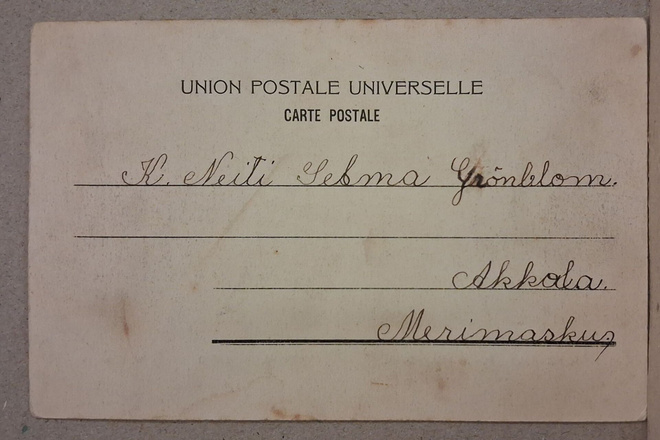 UNION POSTALE UNIVERSELLE
CARTE POSTALE
K. Neiti Selma Grönblom.
Akkala.
Merimasku,